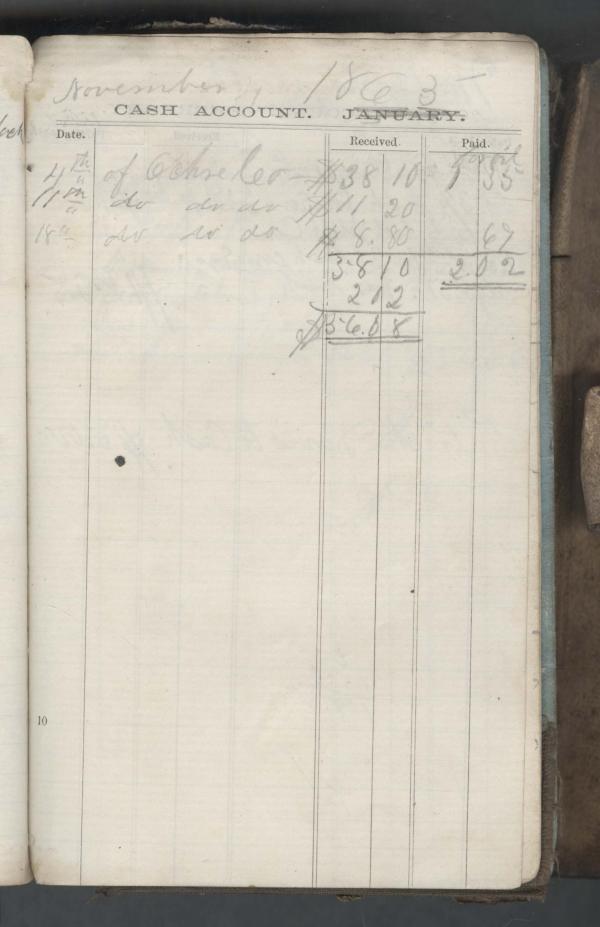 November 1863
CASH ACCOUNT. JANUARY.
Date. Received. Paid.
4th of Ochre Co $38 10 1 35
11th do do do $11 20
18th do do do $8.80 67
58 10 2.02
2 02
$56.08
10